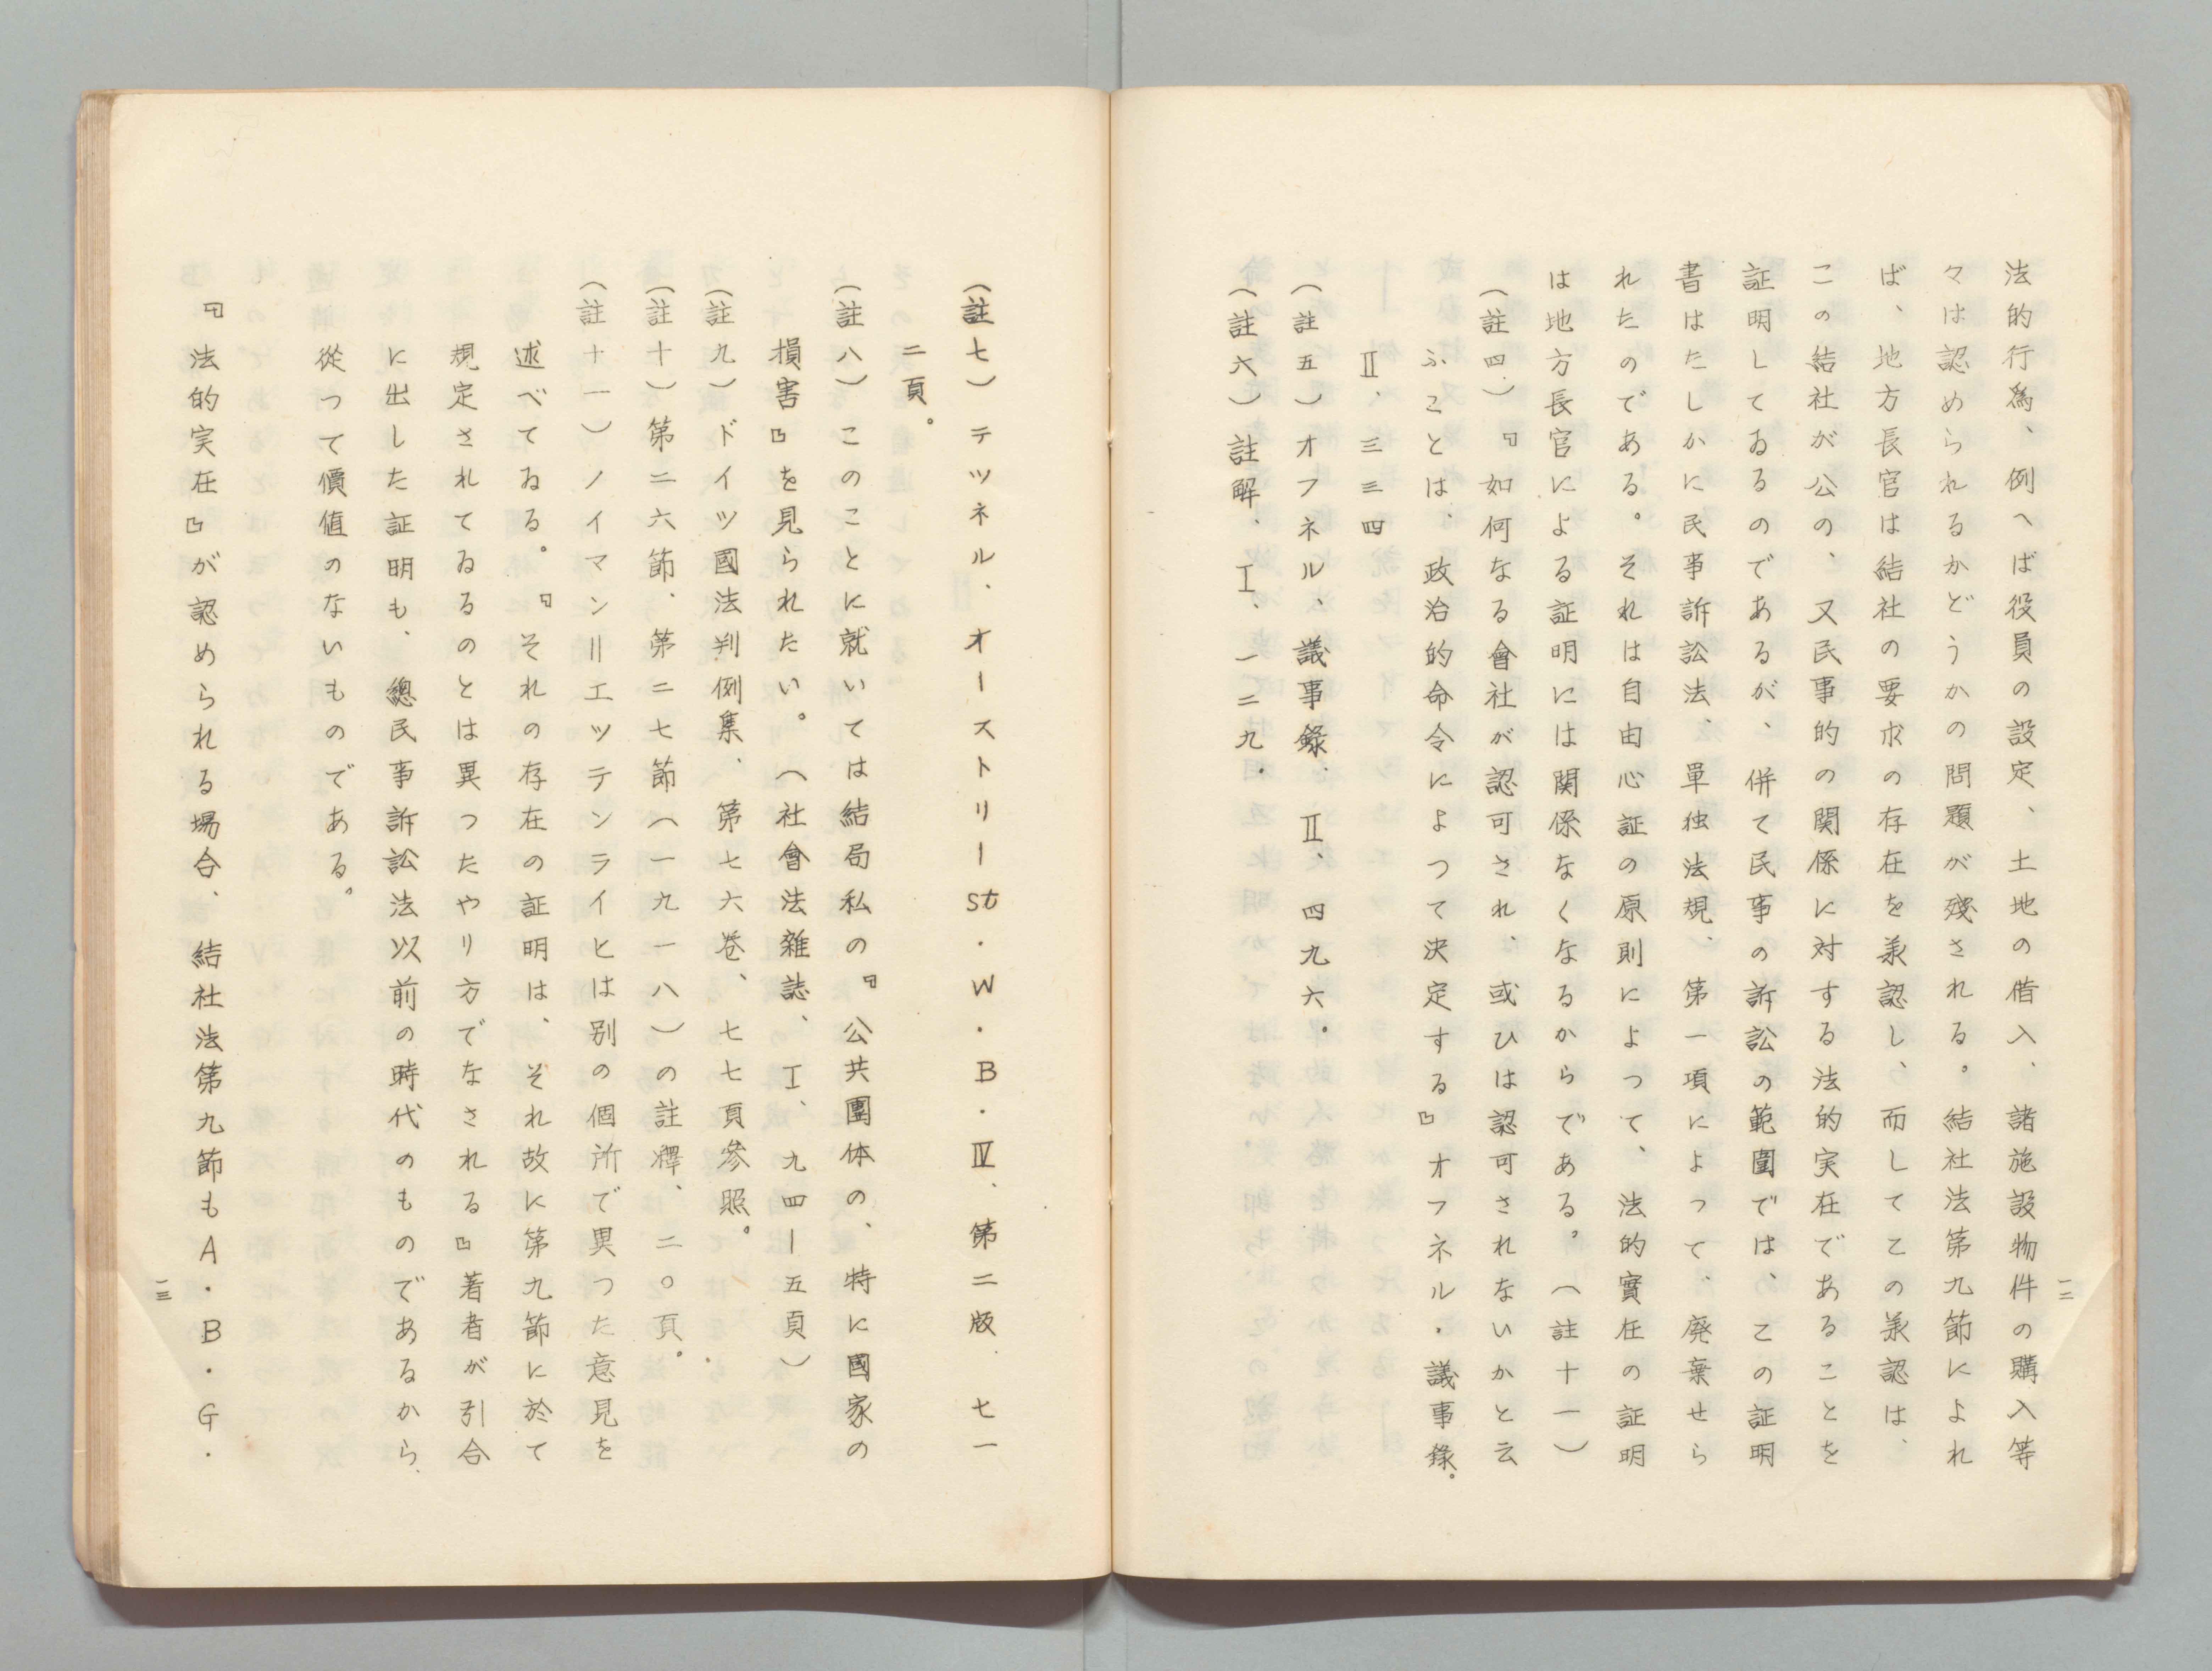 法的行爲、例へば役員の設定、土地の借入、諸施設物件の購入等
々は認められるかどうかの問題が殘される。結社法第九節によれ
ば、地方長官は結社の要求の存在を承認し、而してこの承認は、
この結社が公の、又民事的の関係に対する法的実在であることを
証明してゐるのであるが、併て民事の訴訟の範圍では、この証明
書はたしかに民事訴訟法、單独法規、第一項によって、廃棄せら
れたのである。それは自由心証の原則によって、法的實在の証明
は地方長官による証明には関係なくなるからである。（註十一）
（註四）『如何なる會社が認可され、或ひは認可されないかと云
ふことは、政治的命令によつて決定する』オフネル・議事錄。
Ⅱ、三三四
（註五）オフネル、議事錄、Ⅱ、四九六。
（註六）註解、Ⅰ、一二九．
一二
（註七）テツネル、オーストリーSt・W・B・Ⅳ、第二版、七一
二頁。
（註八）このことに就いては結局私の『公共團体の、特に國家の
損害』を見られたい。（社會法雜誌、Ⅰ、九四ー五頁）
（註九）ドイツ國法判例集、第七六卷、七七頁參照。
（註十）第二六節、第二七節（一九一八）の註釋、二〇頁。
（註十一）ノイマン＝エツテンライヒは別の個所で異つた意見を
述べてゐる。『それの存在の証明は、それ故に第九節に於て
規定されてゐるのとは異つたやり方でなされる』著者が引合
に出した証明も、總民事訴訟法以前の時代のものであるから、
從つて價値のないものである。
『法的実在』が認められる場合、結社法第九節もA・B・G・
一三